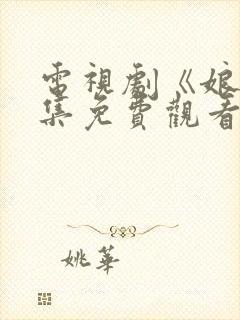 電視劇《娘
集免費觀看
姚華